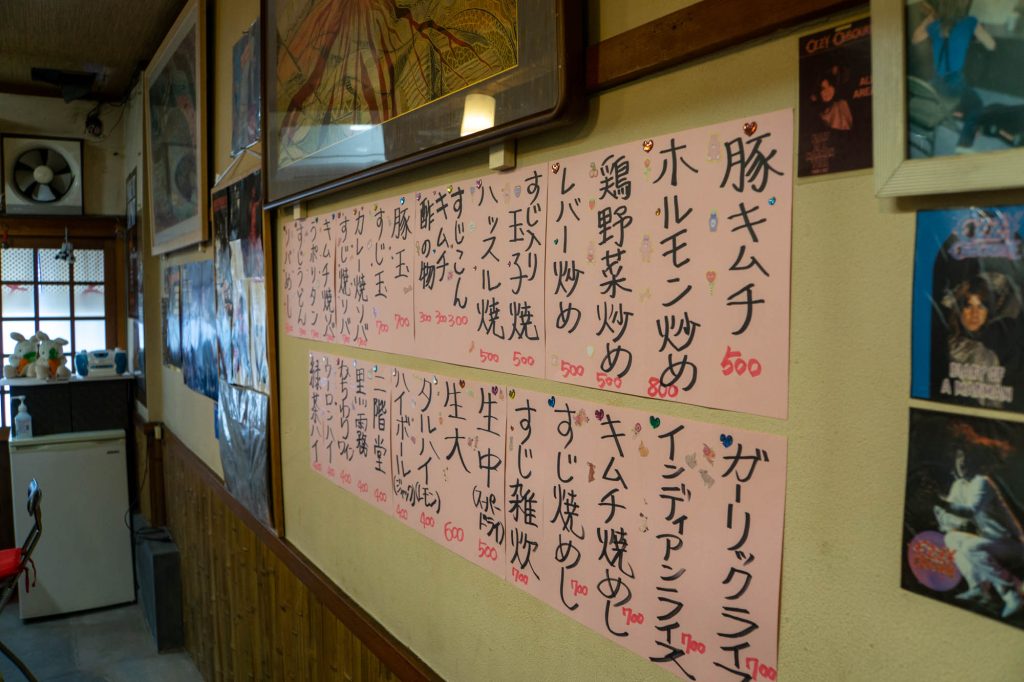 豚キムチ 500
ホルモン炒め 800
鶏野菜炒め 500
レバー炒め 500
すじ入り玉子焼 500
ハッスル焼 500
すじこん 300
キムチ 300
酢の物 300
豚玉 700
すじ玉 700
カレー焼ソバ
すじ焼ソバ
キムチ焼ソバ
ナポリタン
すじうどん
ソバめし
ガーリックライス 700
インディアンライス 700
キムチ焼めし 700
すじ焼めし 700
すじ雑炊 700
生中(スーパードライ) 500
生大 600
タルハイ(レモン) 400
ハイボール(ジャック) 400
二階堂 400
黒霧 400
ウーロンハイ 400
緑茶ハイ 400
OZZY OSBOURNE
DIARY OF
A MADMAN